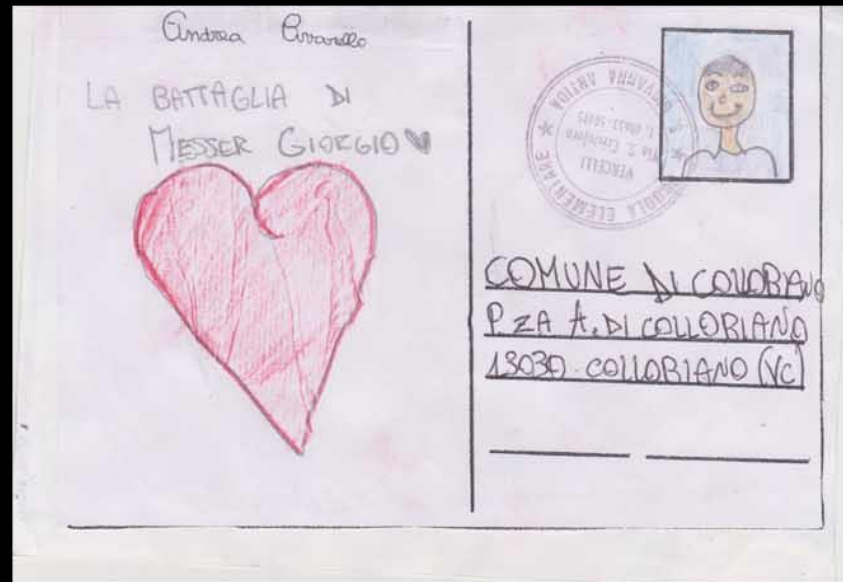 Andrea
LA BATTAGLIA DI
MESSER GIORGIO
ELEMENTARE
ANTIDA
VERCELLI
COMUNE DI COLLOBIANO
P.ZA A. DI COLLOBIANO
13030 COLLOBIANO (VC)